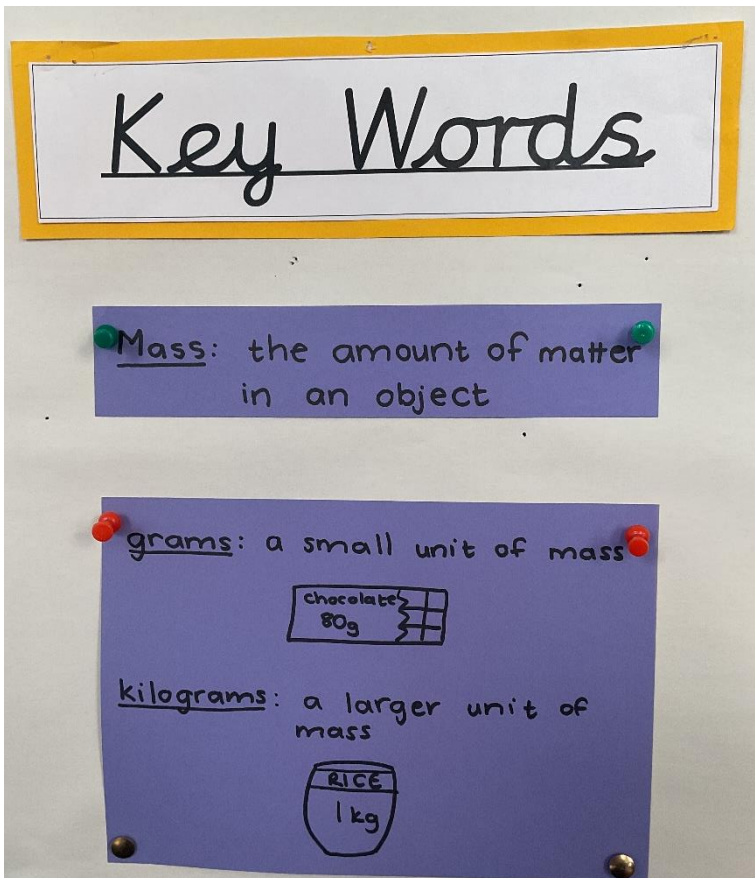 Key Words
Mass: the amount of matter
in an object
grams: a small unit of mass
chocolate
80g
kilograms: a larger unit of
mass
RICE
1kg